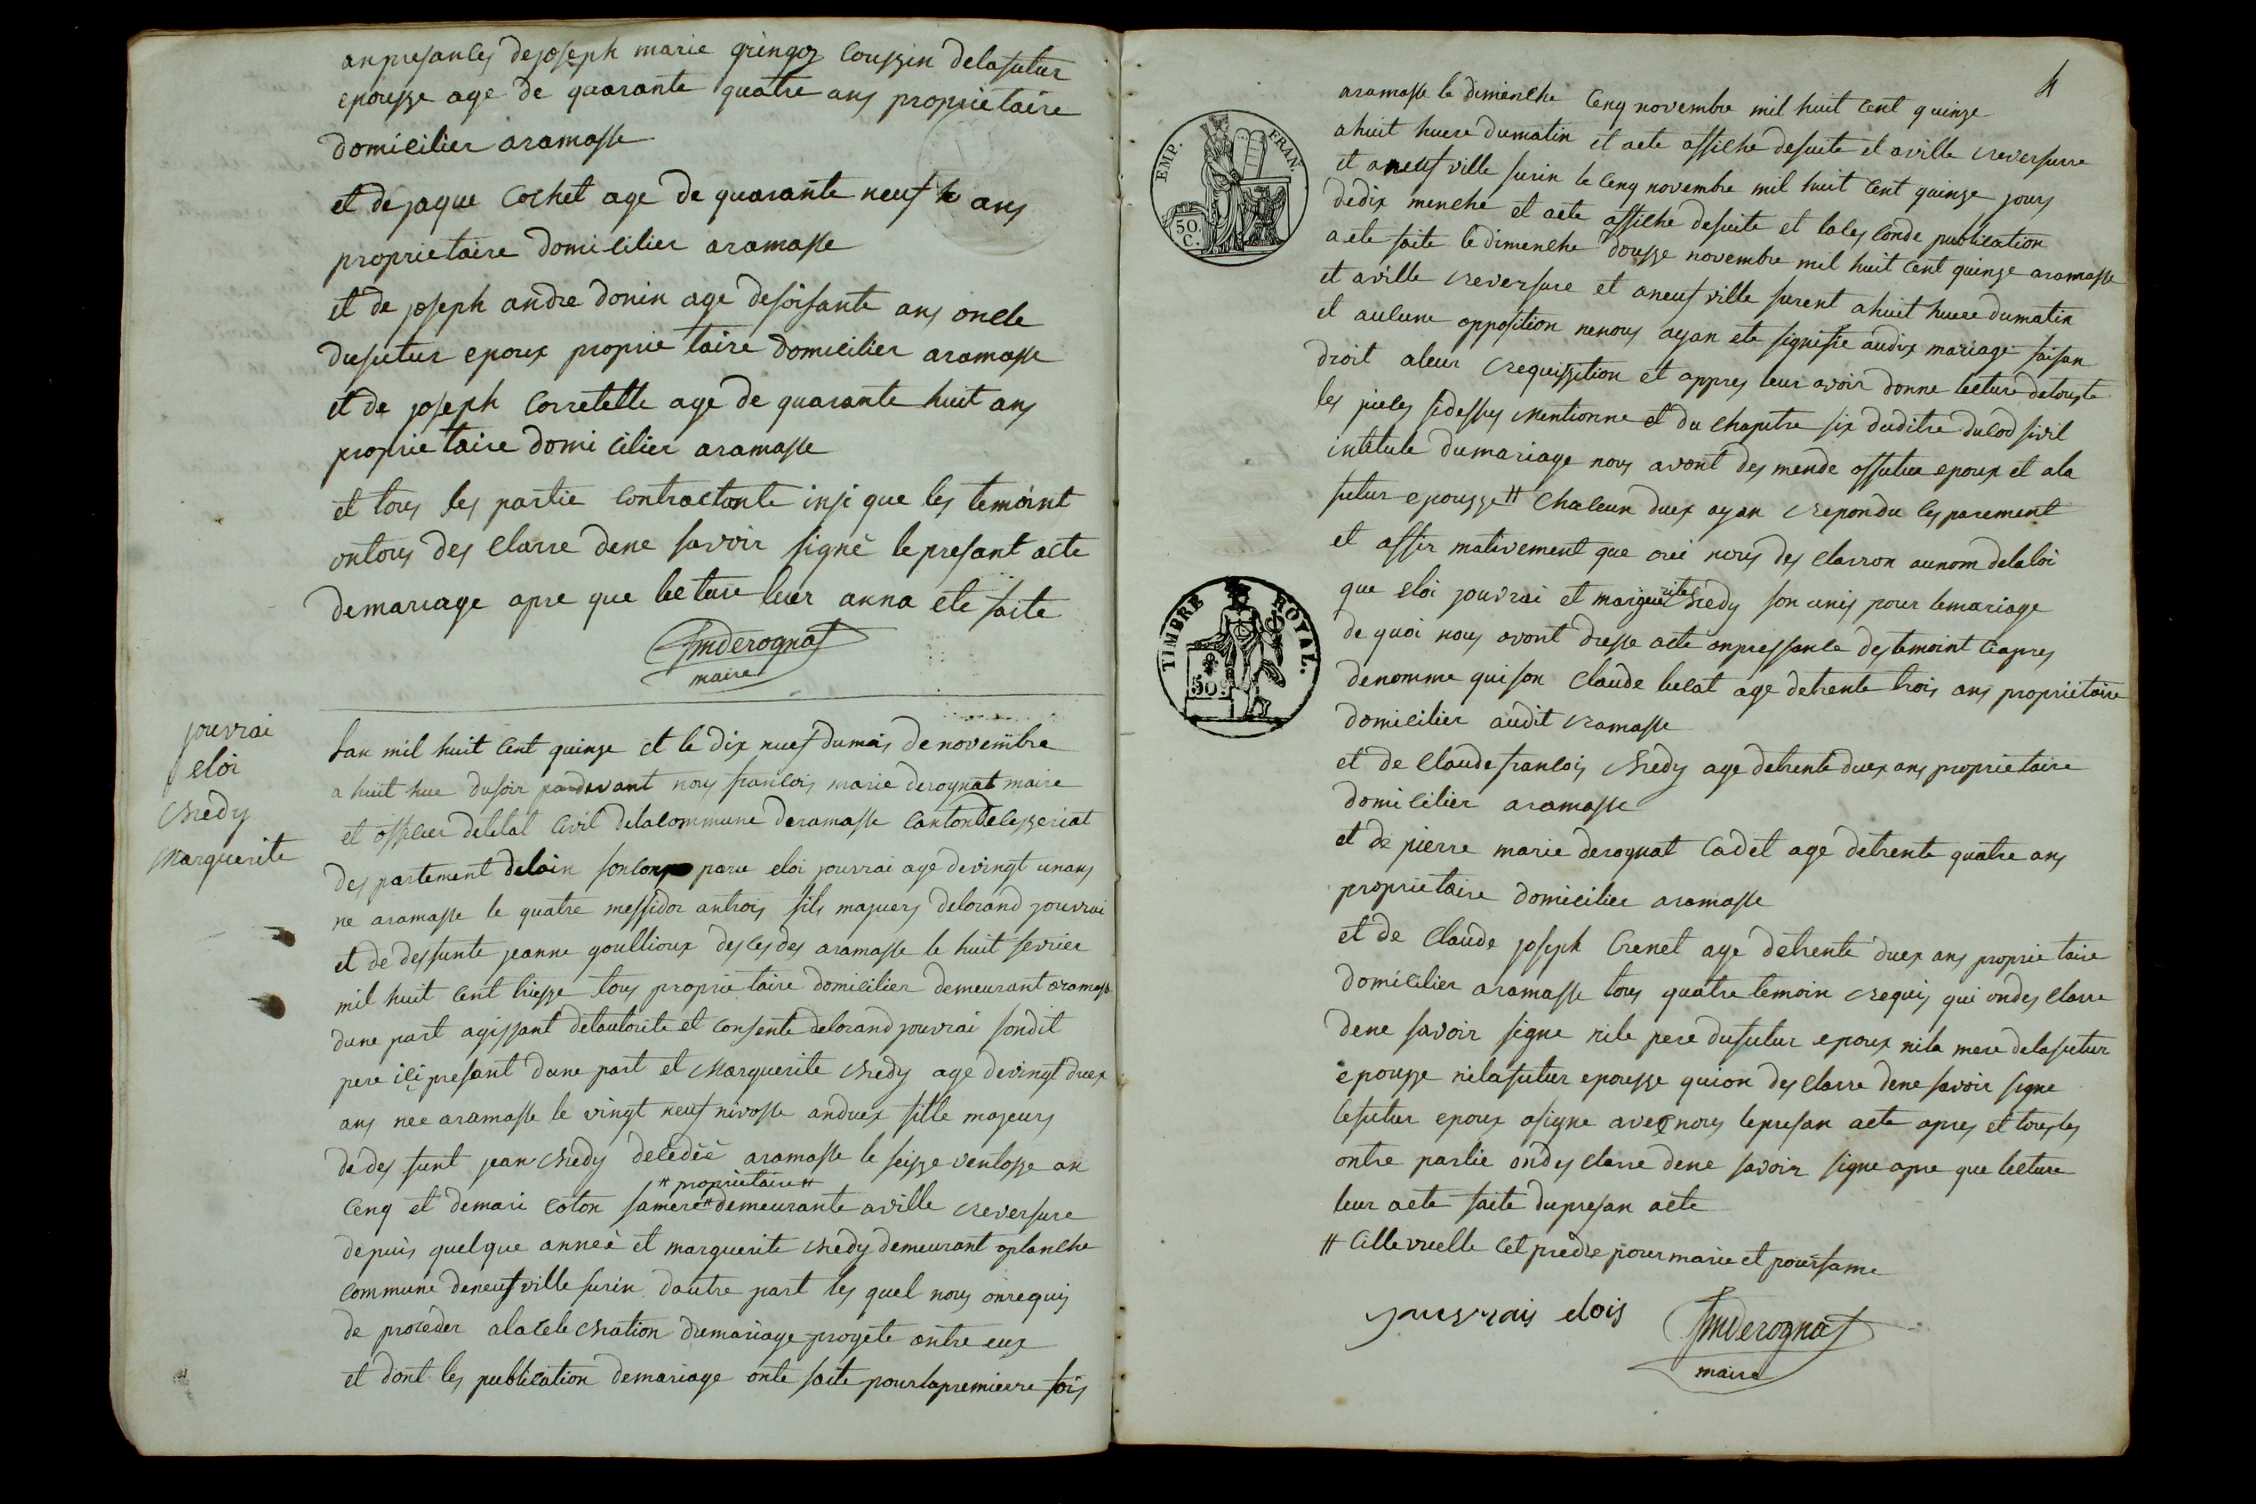 anpresances de joseph marie gringoz coussin delafutur
epousse age de quarante quatre ans proprietaire
domicilier aramasse
et de jaque Cochet age de quarante neuf ans
proprietaire domicilier aramasse
et de joseph andre donin age desoisante ans oncle
dufutur epoux proprietaire domicilier aramasse
et de joseph Corretelle age de quarante huit ans
proprietaire domicilier aramasse
et tous les partie contractante insi que les temoint
ontous des clarre dene savoir signé le presant acte
demariage apre que lecture leur anna ete faite
fmderognat
maire
jouvrai
eloi
Chredy
Marguerite
Lan mil huit cent quinze et le dix nuef dumois de novembre
a huit hue dusoir pardevant nous francois marie derognat maire
et officier deletat civil delacommune deramasse cantondeceyzeriat
des partement delain son parue eloi jouvrai age devingt unans
ne aramasse le quatre messidor antrois fils majuers delorand jouvrai
et de deffunte jeanne goullioux des ces des aramasse le huit fevrier
mil huit cent tresse tous proprietaire domicilier demeurant aramasse
dune part agissant delautorite et consente delorand jouvrai sondit
pere ici presant dune part et Marguerite chredy age devingt duex
ans nee aramasse le vingt neuf nivosse anduex fille majeurs
de def funt jean chredy decedéé aramasse le seisse ventosse an
# proprietaire #
cenq et demari coton samere # demeurante aville reversure
depuis quelque anneé et marguerite chredy demeurant aplanche
commune deneuf ville surin dautre part les quel nous onrequis
de proceder alacele chration dumariage progete antre eux
et dont les publication demariage onte faite pourlapremierre fois
4
aramasse le dimenche cenq novembre mil huit cent quinze
ahuit huere dumatin et aete affiche desuite et aville reversurre
et aneuf ville surin le cenq novembre mil huit cent quinze jours
dedix menche et aete affiche desuite et lases conde publication
aete faite le dimenche dousse novembre mil huit cent quinze aramasse
et aville reversure et aneuf ville surent ahuit huere dumatin
et aucune opposition nenous ayan ete signifie audix mariage faisan
droit aleur requissition et appres leur avoir donne lecture detouste
les pieces sidessus mentionne et du chapitre six duditre ducod sivil
intitule dumariage nous avont des mende offutur epoux et ala
futur epousse # chaceun duex ayan repondu ces parement
et affir mativement que oui nous des clarron aunom delaloi
que eloi jouvrai et marguerite chredy son unis pour lemariage
de quoi nous avont dresse acte anpressance des temoint ciapres
denomme quison Claude lucat age detrente trois ans proprietaire
domicilier audit ramasse
et de Claude francois chredy age detrente duex ans proprietaire
domicilier aramasse
et de pierre marie derognat cadet age detrente quatre ans
proprietaire domicilier aramasse
et de Claude joseph Crenet age detrente duex ans proprietaire
domicilier aramasse tous quatre temoin requis qui ondes clarre
dene savoir signe nile pere dufutur epoux nila mere delafutur
epousse nilafutur epousse quion des clarre dene savoir signe
lefutur epoux asigne avec nous lepresan acte apres et tousles
ontre partie ondes clarre dene savoir signe apre que lecture
leur aete faite dupresan acte
# cille vuelle cet predre pour marie et pour fame
jouvrais elois
fmderognat
maire
EMP. FRAN.
50.
C.
TIMBRE ROYAL.
50 c